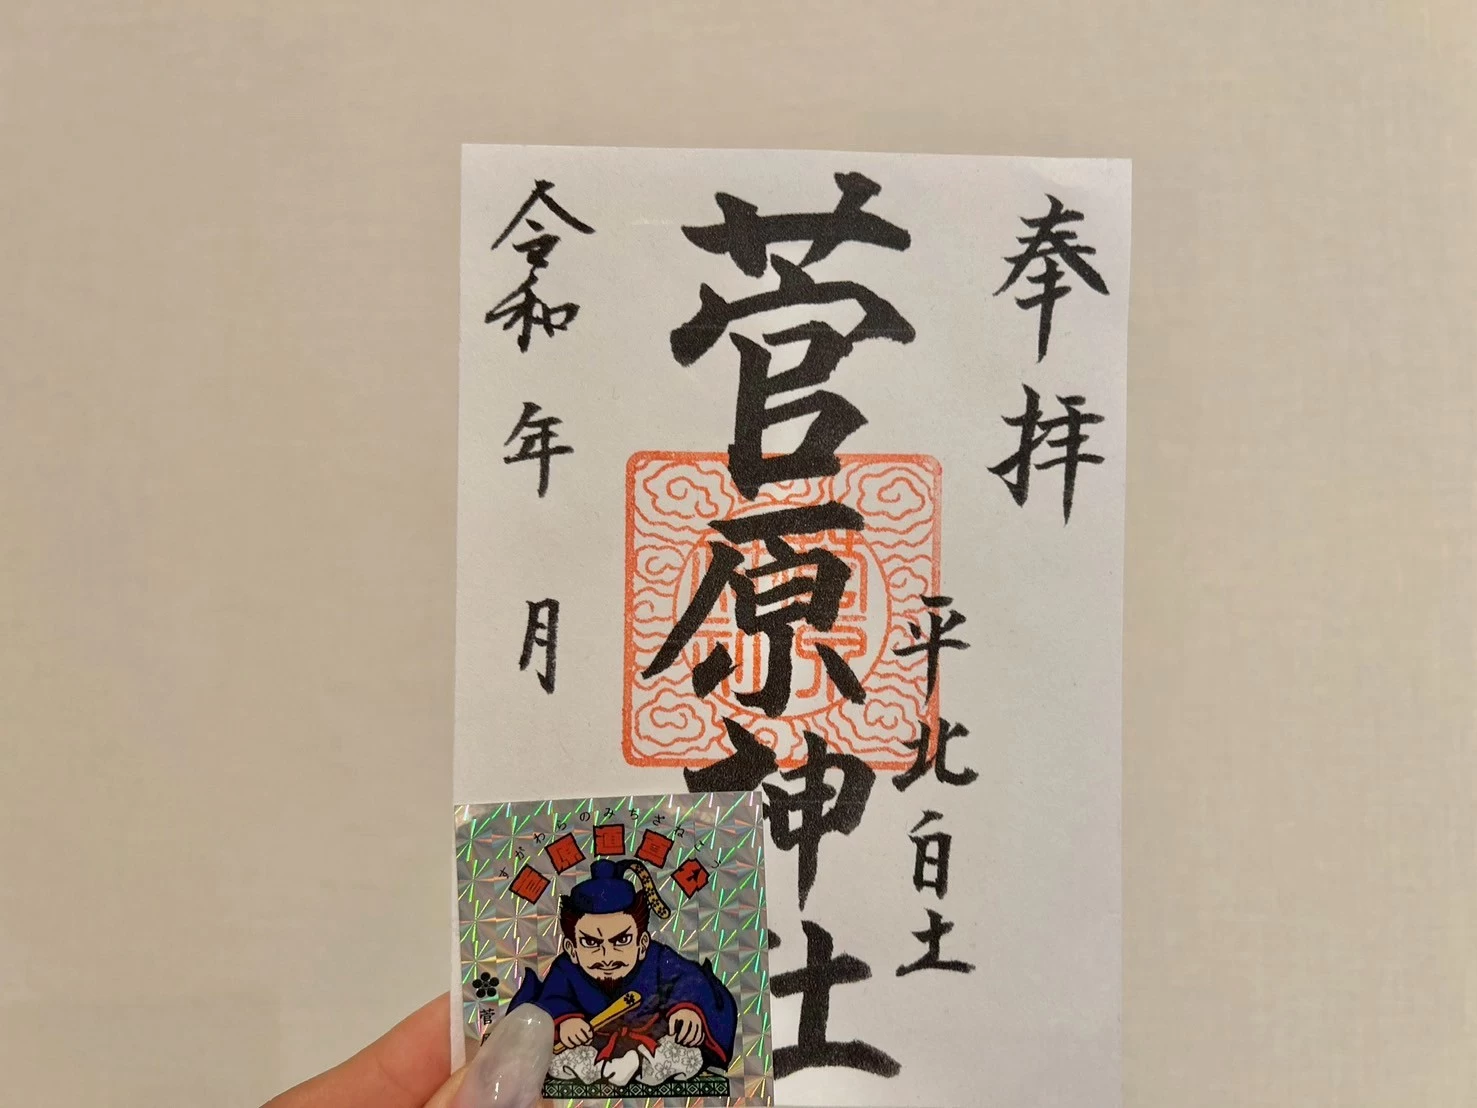 奉拝
平北白土
菅原神社
令和 年 月
すがわらのみちざね
菅原道真公
菅